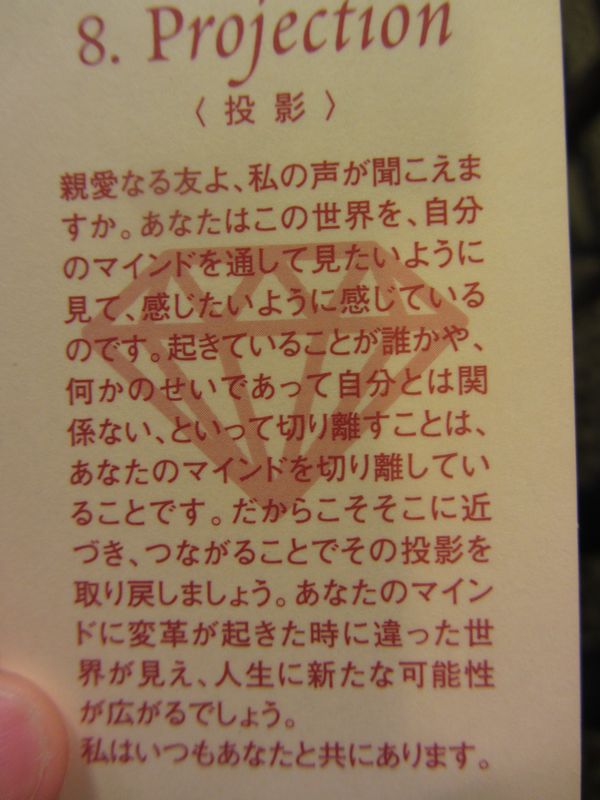 8. Projection
〈 投 影 〉
親愛なる友よ、私の声が聞こえま
すか。あなたはこの世界を、自分
のマインドを通して見たいように
見て、感じたいように感じている
のです。起きていることが誰かや、
何かのせいであって自分とは関
係ない、といって切り離すことは、
あなたのマインドを切り離してい
ることです。だからこそそこに近
づき、つながることでその投影を
取り戻しましょう。あなたのマイン
ドに変革が起きた時に違った世
界が見え、人生に新たな可能性
が広がるでしょう。
私はいつもあなたと共にあります。